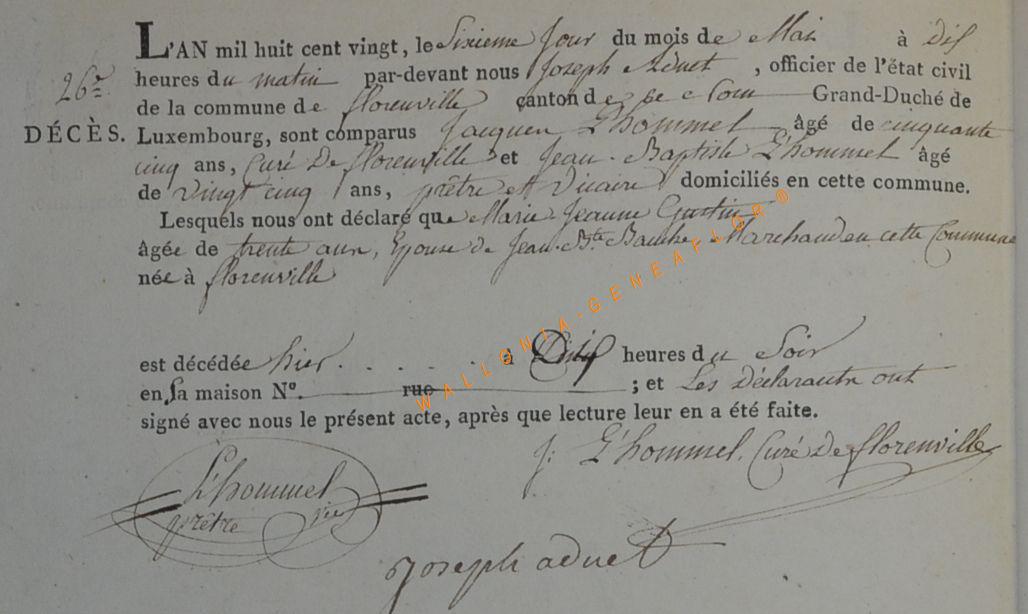 L'AN mil huit cent vingt, le Sixieme Jour du mois de Mai à Dix
26e
heures du matin par-devant nous Joseph Aduet, officier de l'état civil
de la commune de florenville canton de ce nom Grand-Duché de
DÉCÈS. Luxembourg, sont comparus Jacques L'hommel âgé de cinquante
cinq ans, Curé De florenville et Jean-Baptiste L'hommel âgé
de Vingt cinq ans, prêtre et Vicaire domiciliés en cette commune.
Lesquels nous ont déclaré que Marie Jeanne
âgée de trente ans, Epouse de Jean-Bte Marchand en cette Commune
née à florenville
est décédée hier . . . . . à Dix heures du Soir
en sa maison N°. rue ; et Les Déclarants ont
signé avec nous le présent acte, après que lecture leur en a été faite.
J: L'hommel, Curé De florenville
L'hommel
prêtre vic
Joseph aduet
WALLONIA-GENEAFLOR®